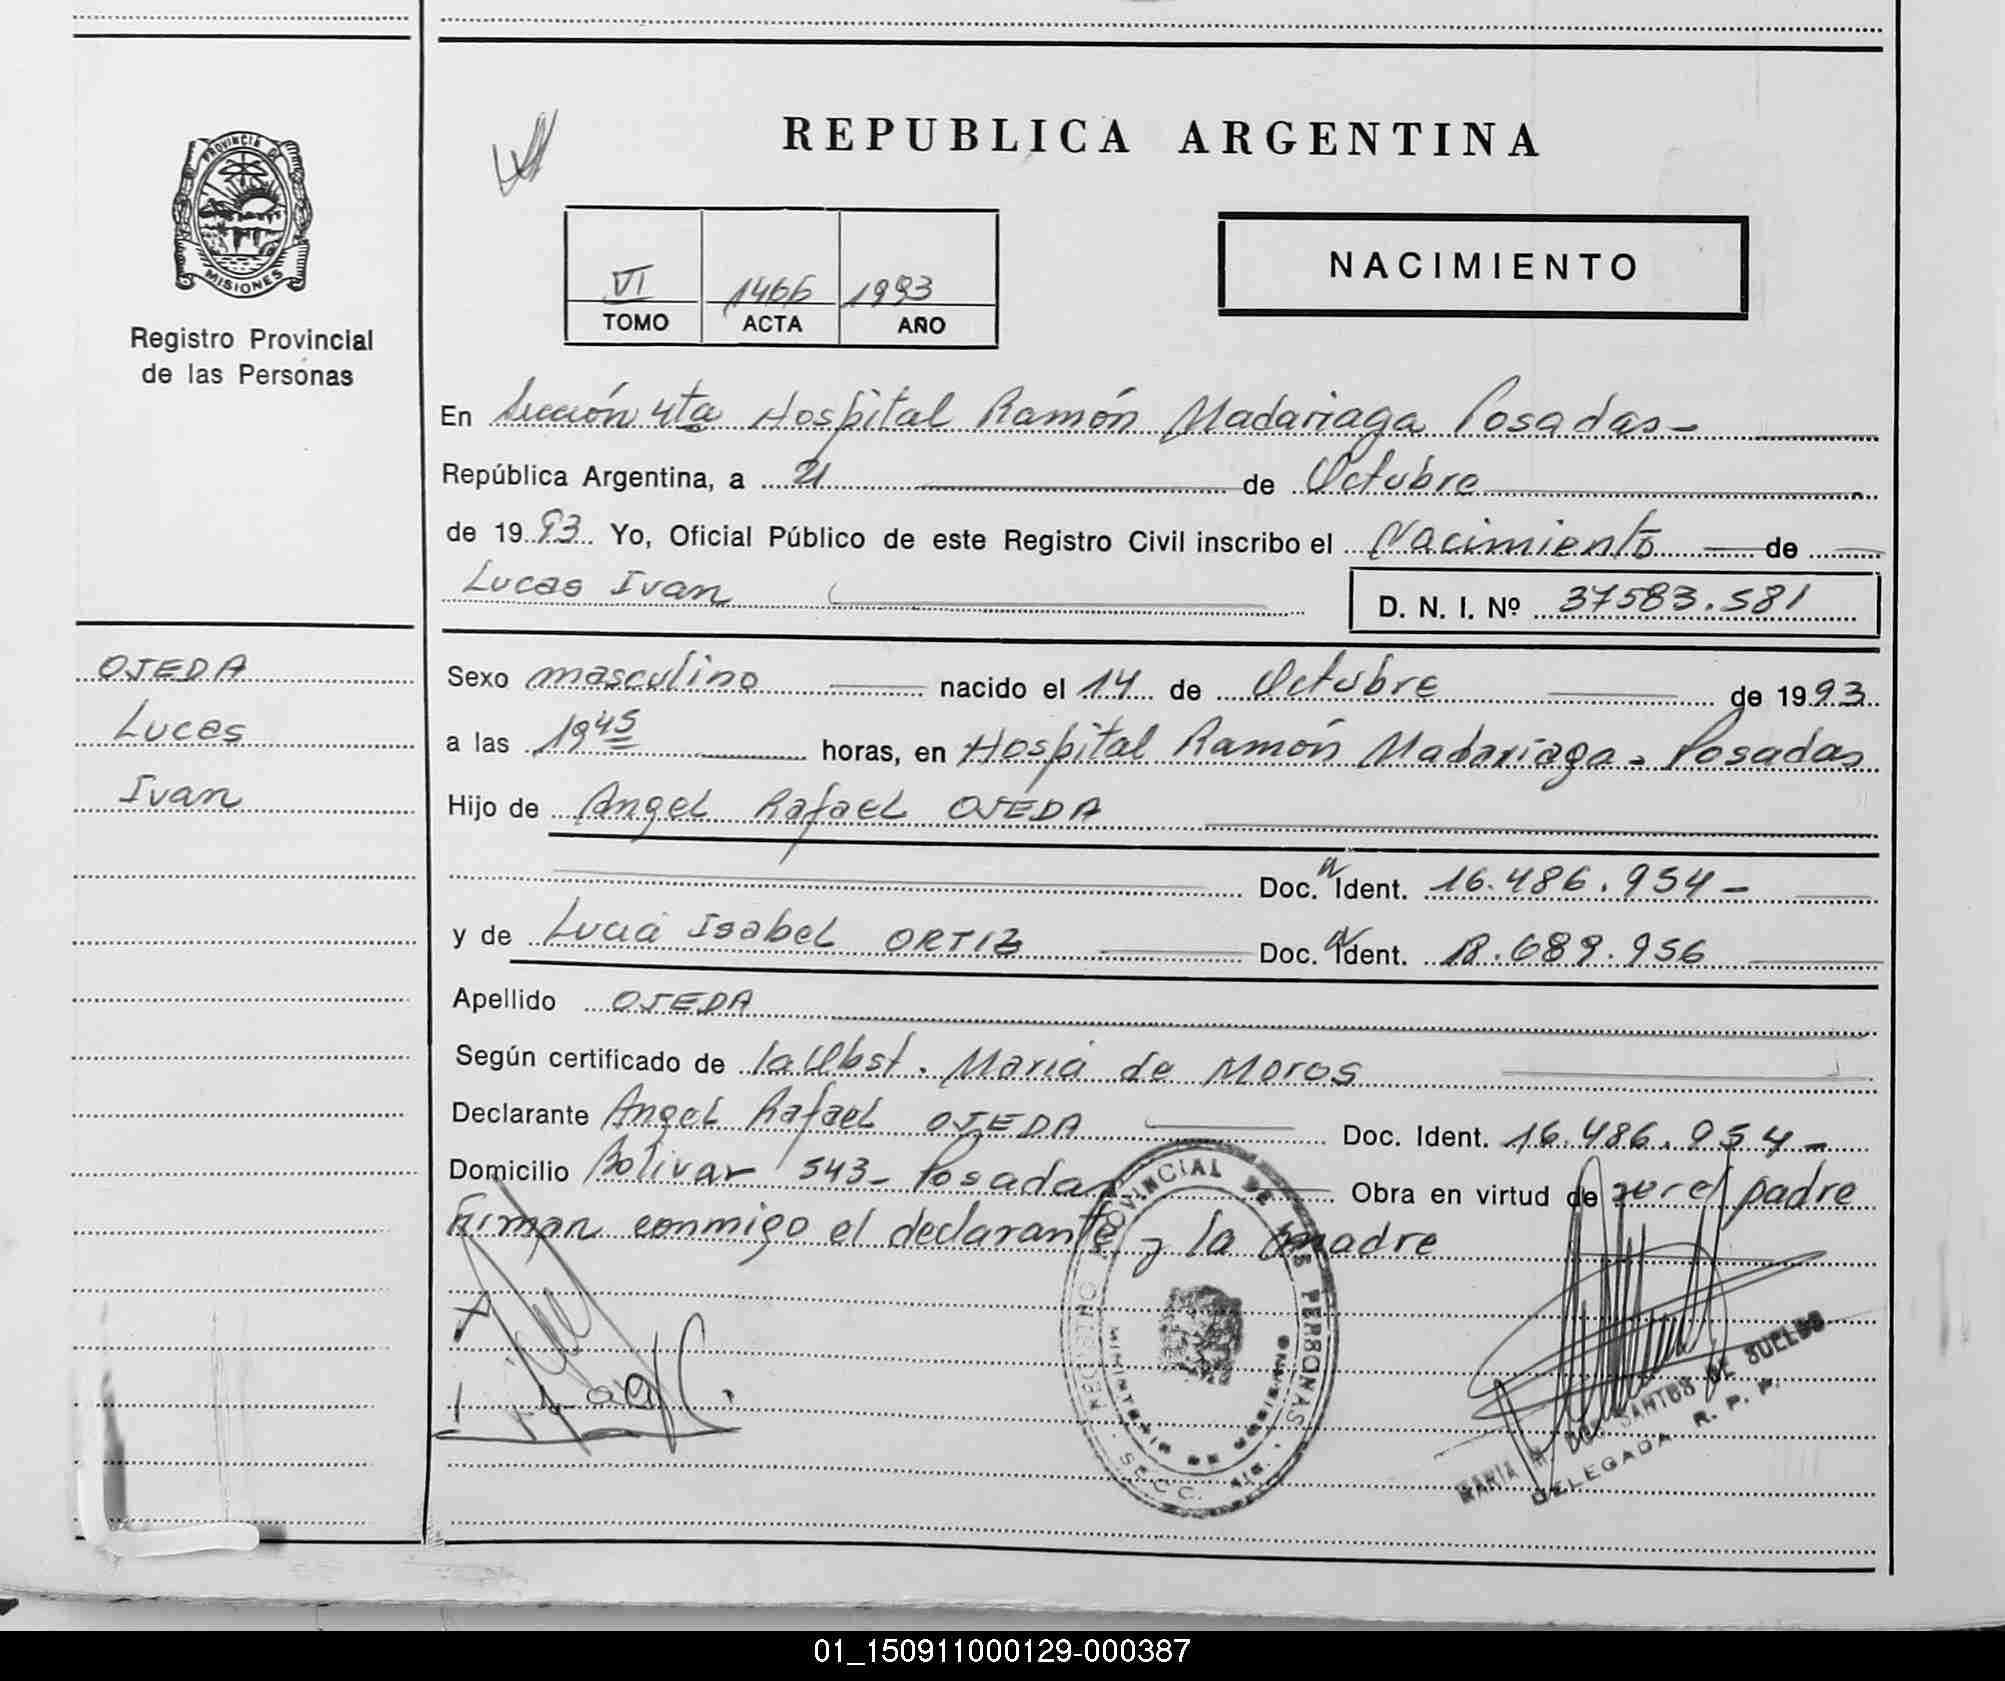 REPUBLICA ARGENTINA
PROVINCIA DE
MISIONES
Registro Provincial
de las Personas
NACIMIENTO
VI 1466 1993
TOMO ACTA AÑO
En Sección 4ta Hospital Ramón Madariaga Posadas-
República Argentina, a 21 de Octubre
de 1993 Yo, Oficial Público de este Registro Civil inscribo el Nacimiento de
Lucas Ivan D. N. I. Nº 37583.581
OJEDA
Lucas
Ivan
Sexo masculino nacido el 14 de Octubre de 1993
a las 19 45 horas, en Hospital Ramón Madariaga - Posadas
Hijo de Angel Rafael OJEDA
Doc. Ident. 16.486.954-
y de Lucia Isabel ORTIZ Doc. Ident. 18.689.956
Apellido OJEDA
Según certificado de la Obst. Maria de Moros
Declarante Angel Rafael OJEDA Doc. Ident. 16.486.954-
Domicilio Bolivar 543- Posadas Obra en virtud de ser el padre
Firman conmigo el declarante y la madre
REGISTRO PROVINCIAL DE LAS PERSONAS
MINISTERIO DE GOBIERNO
MARIA DOS SANTOS DE SUELDO
DELEGADA R. P. P.
01_150911000129-000387